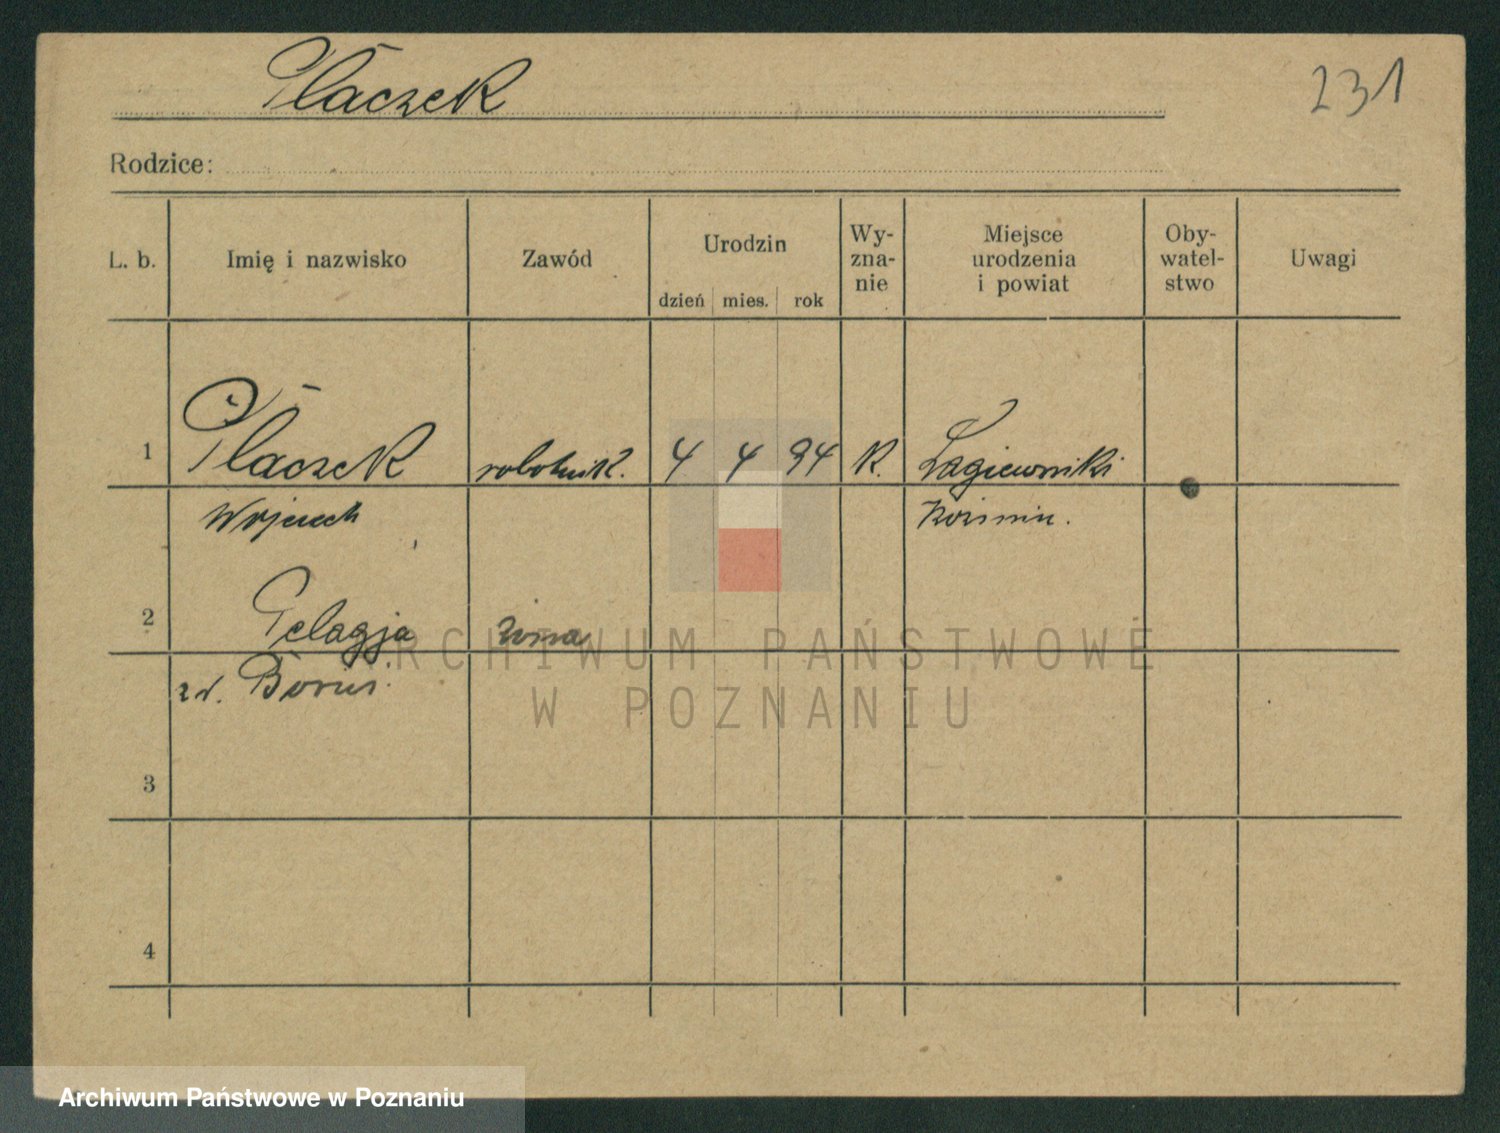 Płaczek
231
Rodzice:
L. b. Imię i nazwisko Zawód Urodzin dzień mies. rok Wy-zna-nie Miejsce urodzenia i powiat Oby-watel-stwo Uwagi
1 Płaczek robotnik. 4 4 94 K. Łagiewniki
Wojciech Koźmin.
2 Pelagja żona
zd.
3
4
ARCHIWUM PAŃSTWOWE
W POZNANIU
Archiwum Państwowe w Poznaniu